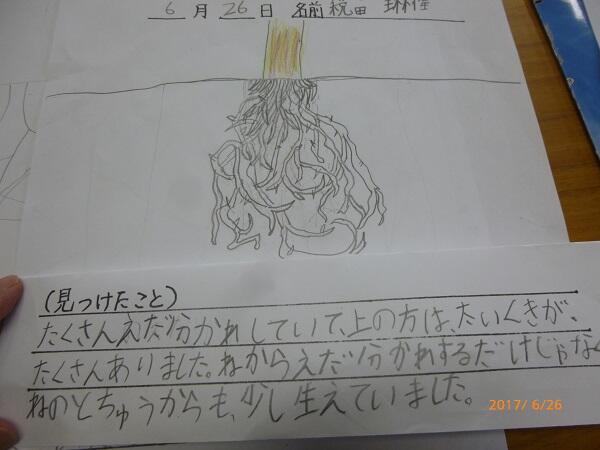 6月26日 名前 税田
(見つけたこと)
たくさんえだ分かれしていて、上の方は、たいくきが、
たくさんありました。ねからえだ分かれするだけじゃなく
ねのとちゅうからも、少し生えていました。
2017/ 6/26